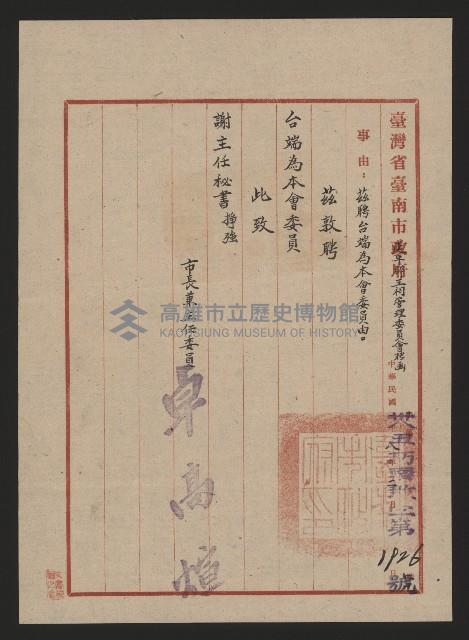 臺灣省臺南市政府延平郡王祠管理委員會聘函
中華民國
第1926號
事由：茲聘台端為本會委員由。
茲敦聘
台端為本會委員
此致
謝主任秘書掙強
市長兼主任委員
卓高煊
高雄市立歷史博物館
KAOHSIUNG MUSEUM OF HISTORY